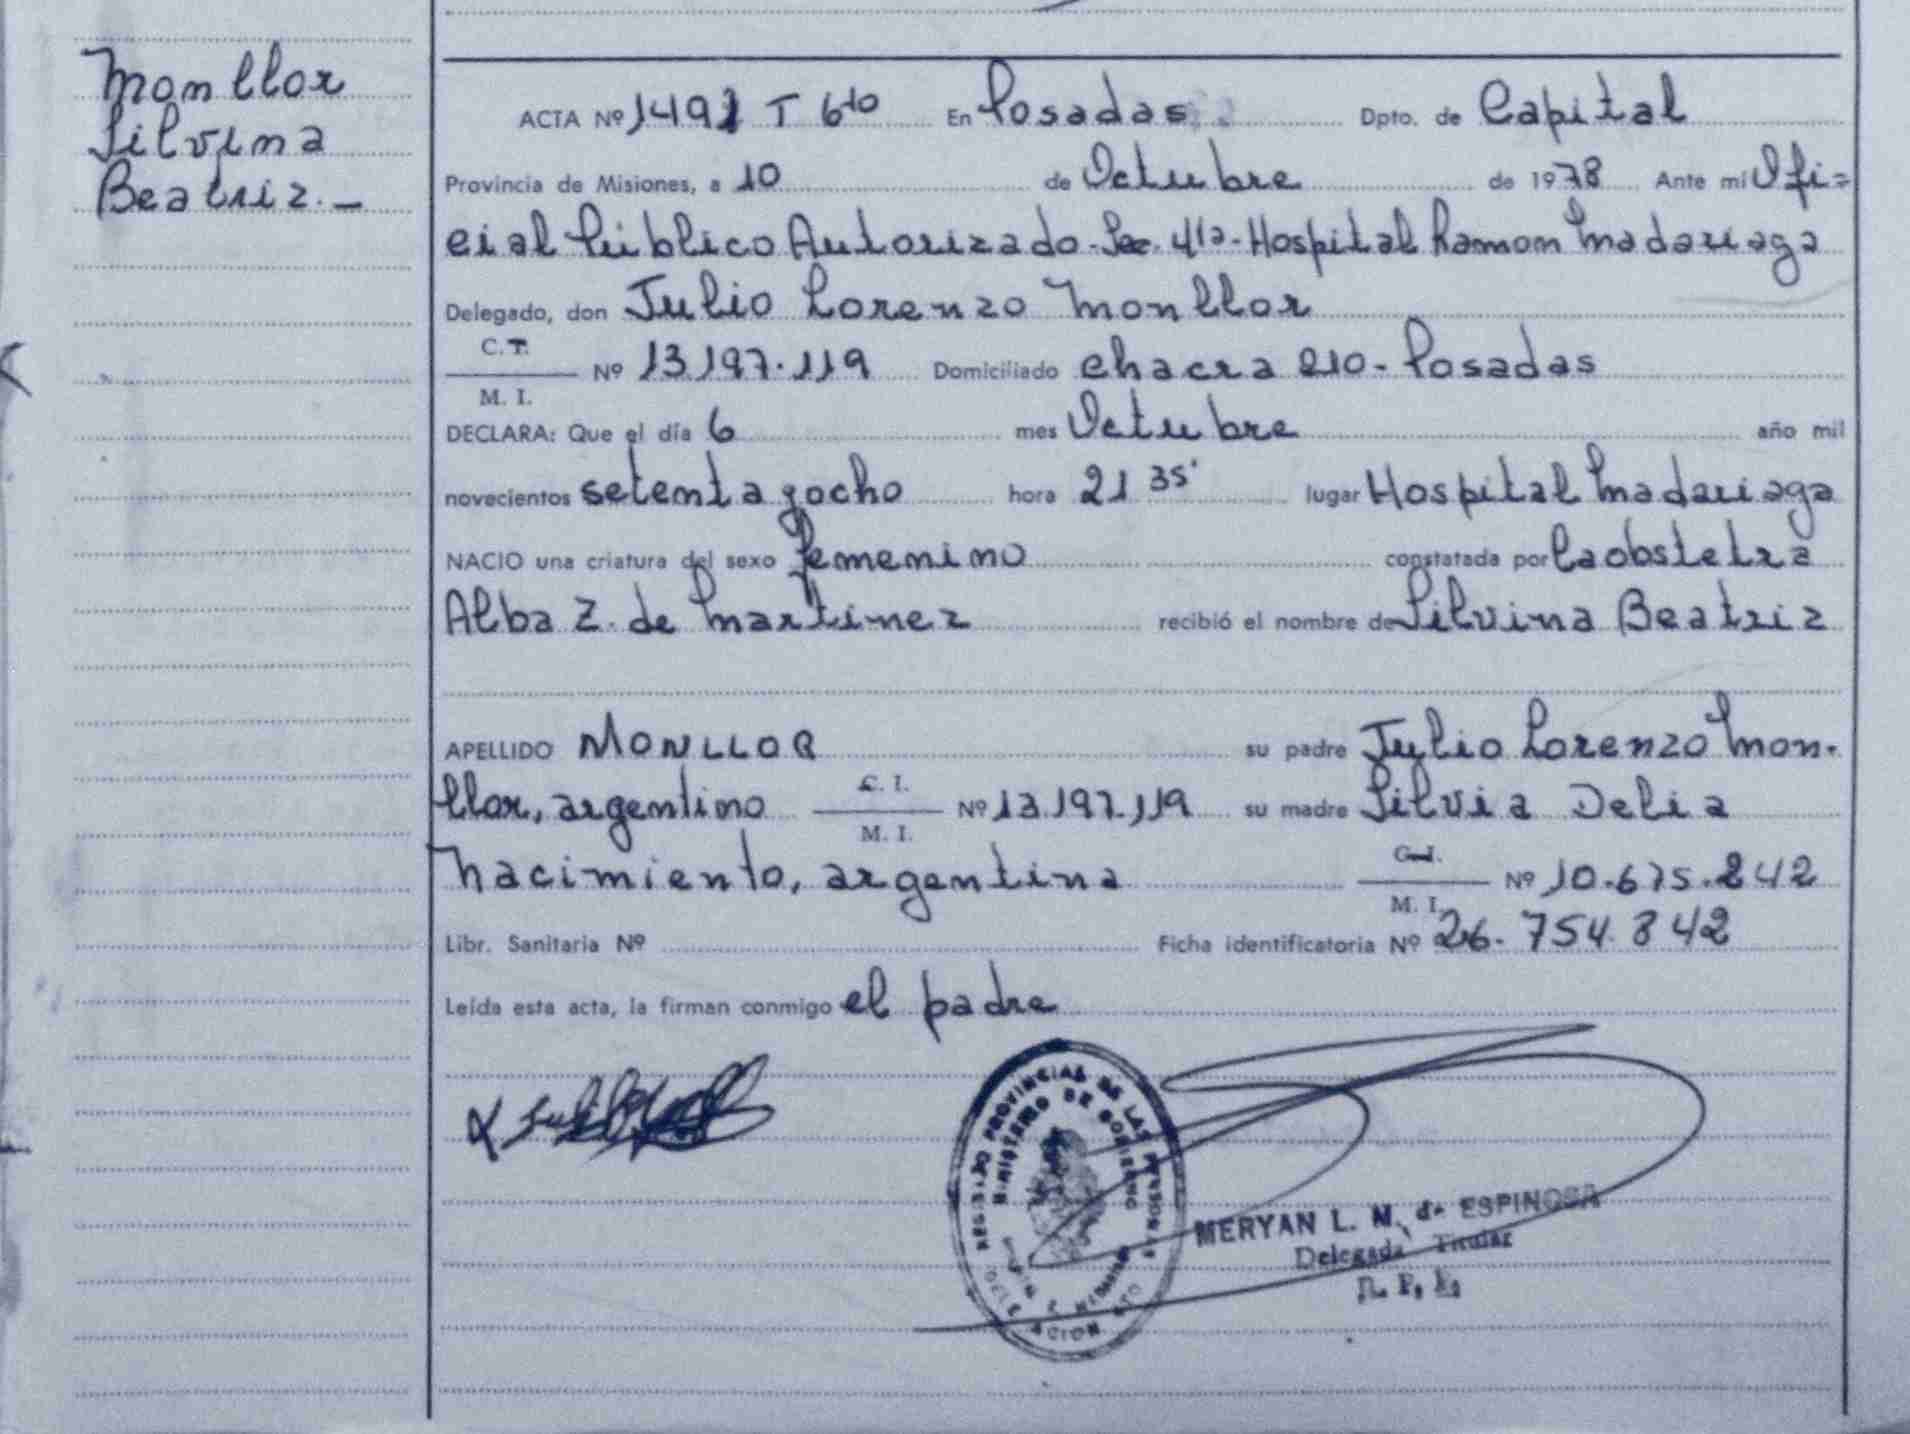 Monllor
Silvina
Beatriz.-
ACTA Nº 1491 T 6to En Posadas Dpto. de Capital
Provincia de Misiones, a 10 de Octubre de 1978 Ante mi Ofi=
cial Público Autorizado-Sec. 4ta-Hospital Ramon Madariaga
Delegado, don Julio Lorenzo Monllor
C.I.
Nº 13.197.119 Domiciliado Chacra 210-Posadas
M. I.
DECLARA: Que el día 6 mes Octubre año mil
novecientos setenta y ocho hora 21 35' lugar Hospital Madariaga
NACIO una criatura del sexo femenino constatada por la obstetra
Alba Z. de Martinez recibió el nombre de Silvina Beatriz
APELLIDO MONLLOR su padre Julio Lorenzo Mon-
llor, argentino C. I. Nº 13.197.119 su madre Silvia Delia
M. I.
Nacimiento, argentina C. I. Nº 10.675.242
M. I.
Libr. Sanitaria Nº Ficha identificatoria Nº 26.754.842
Leída esta acta, la firman conmigo el padre
REGISTRO PROVINCIAL DE LAS PERSONAS
MINISTERIO DE GOBIERNO
MERYAN L. M. de ESPINOSA
Delegada Titular